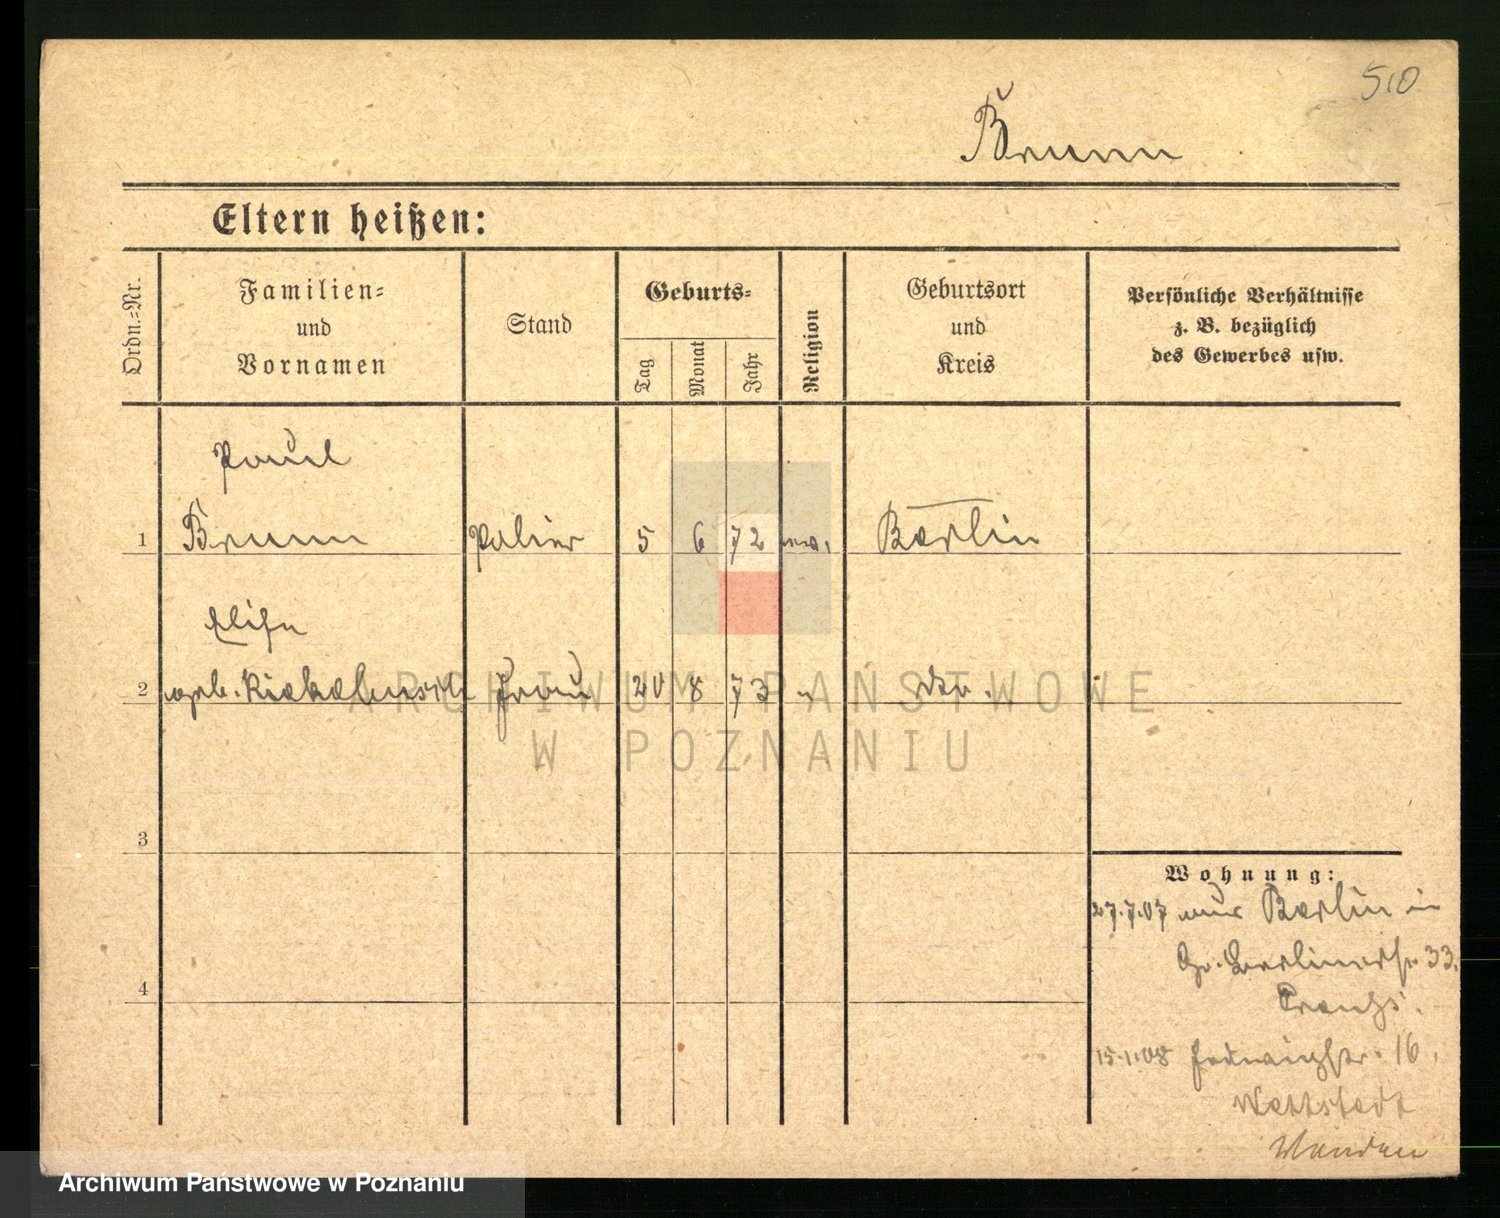 510
Brunn
Eltern heißen:
Ordn.=Nr.
Familien=
und
Vornamen
Stand
Geburts=
Tag
Monat
Jahr
Religion
Geburtsort
und
Kreis
Persönliche Verhältnisse
z. B. bezüglich
des Gewerbes usw.
Paul
1 Brunn Polier 5 6 72 Berlin
Elise
2 geb. Frau 20 8 73 " do.
3
4
Wohnung:
27.7.07 aus Berlin in
Gr. Berlinerstr 33.
15.1.08 Hedwigstr. 16.
ARCHIWUM PAŃSTWOWE
W POZNANIU
Archiwum Państwowe w Poznaniu